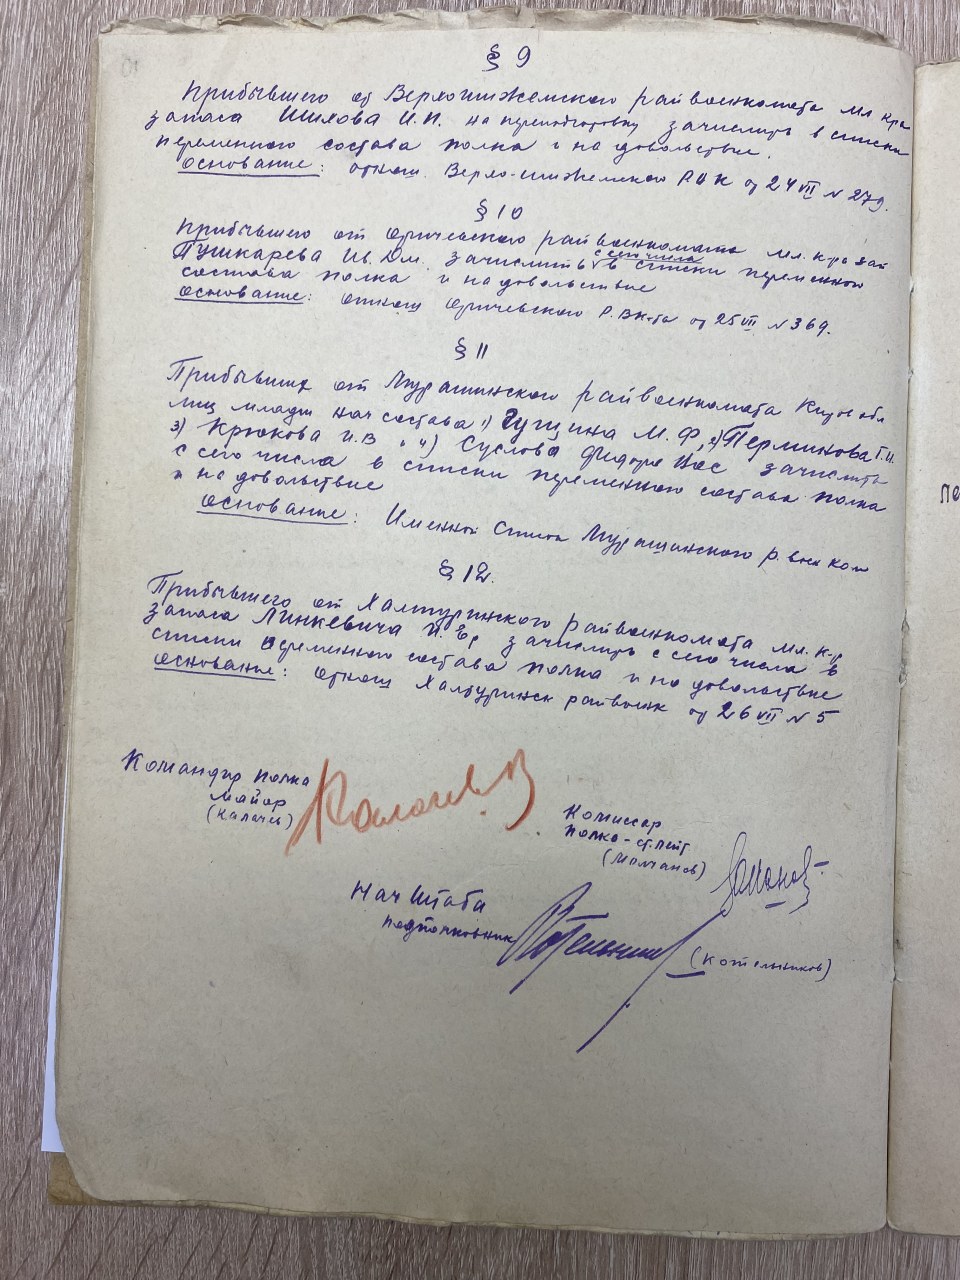 § 9
Прибывшего от Верхошижемского райвоенкомата мл. к-ра
запаса Шихова И.П. на переподготовку зачислить в списки
переменного состава полка и на довольствие.
Основание: отнош. Верхо-шижемского РВК от 24 VII N 279.
§ 10
Прибывшего от Оричевского райвоенкомата мл. к-ра зап
Пушкарева Ив. Дм. зачислить с сего числа в списки переменного
состава полка и на довольствие
Основание: отнош Оричевского Р.ВК-та от 25 VII N 369.
§ 11
Прибывших от Мурашинского райвоенкомата Киров обл
лиц младш нач состава 1) Гущина М.Ф, 2) Перминова Г.И.
3) Крюкова И.В и 4) Суслова Федора Вас зачислить
с сего числа в списки переменного состава полка
и на довольствие
Основание: Именной Список Мурашинского р. воен ком
§ 12.
Прибывшего от Халтуринского райвоенкомата мл. к-р
запаса Линкевича И. Ер зачислить с сего числа в
списки переменного состава полка и на довольствие
Основание: отнош Халтуринск райвоенк от 26 VII N 5
Командир полка
Майор
(Калачев)
Калачев
Комиссар
полка - ст. лейт
(Молчанов)
Нач Штаба
подполковник
(Котельников)
пе